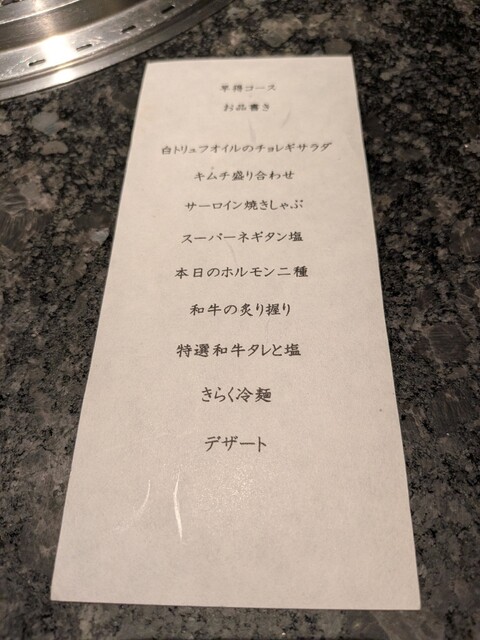 早得コース
お品書き
白トリュフオイルのチョレギサラダ
キムチ盛り合わせ
サーロイン焼きしゃぶ
スーパーネギタン塩
本日のホルモン二種
和牛の炙り握り
特選和牛タレと塩
きらく冷麺
デザート